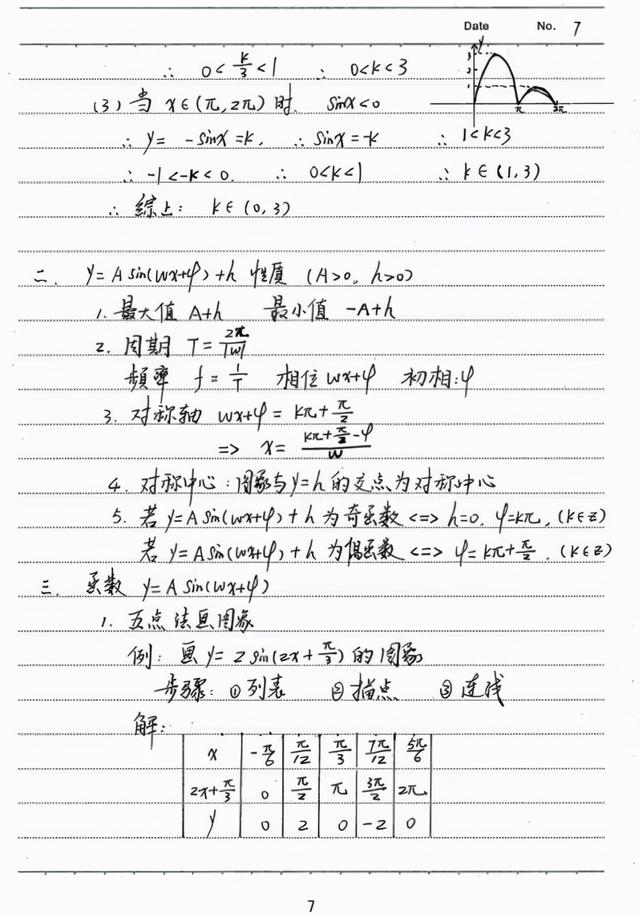 Date No. 7
∴ 0<k/3<1 ∴ 0<k<3
y 3 2 1 π 2π
(3) 当 x∈(π,2π)时. sinx<0
∴ y= -sinx=k. ∴ sinx=-k ∴ 1<k<3
∴ -1<-k<0. ∴ 0<k<1 ∴ k∈(1,3)
∴ 综上: k∈(0,3)
二. y=A sin(wx+φ)+h 性质 (A>0, h>0)
1. 最大值 A+h 最小值 -A+h
2. 周期 T=2π/|w|
频率 f=1/T 相位 wx+φ 初相:φ
3. 对称轴 wx+φ=kπ+π/2
=> x=(kπ+π/2-φ)/w
4. 对称中心:图象与y=h的交点为对称中心
5. 若y=A sin(wx+φ)+h为奇函数<=>h=0, φ=kπ, (k∈z)
若y=A sin(wx+φ)+h为偶函数<=>φ=kπ+π/2. (k∈z)
三. 函数 y=A sin(wx+φ)
1. 五点法画图象
例: 画y=2sin(2x+π/3)的图象
步骤: ①列表 ②描点 ③连线
解:
x -π/6 π/12 π/3 7π/12 5π/6
2x+π/3 0 π/2 π 3π/2 2π
y 0 2 0 -2 0
7